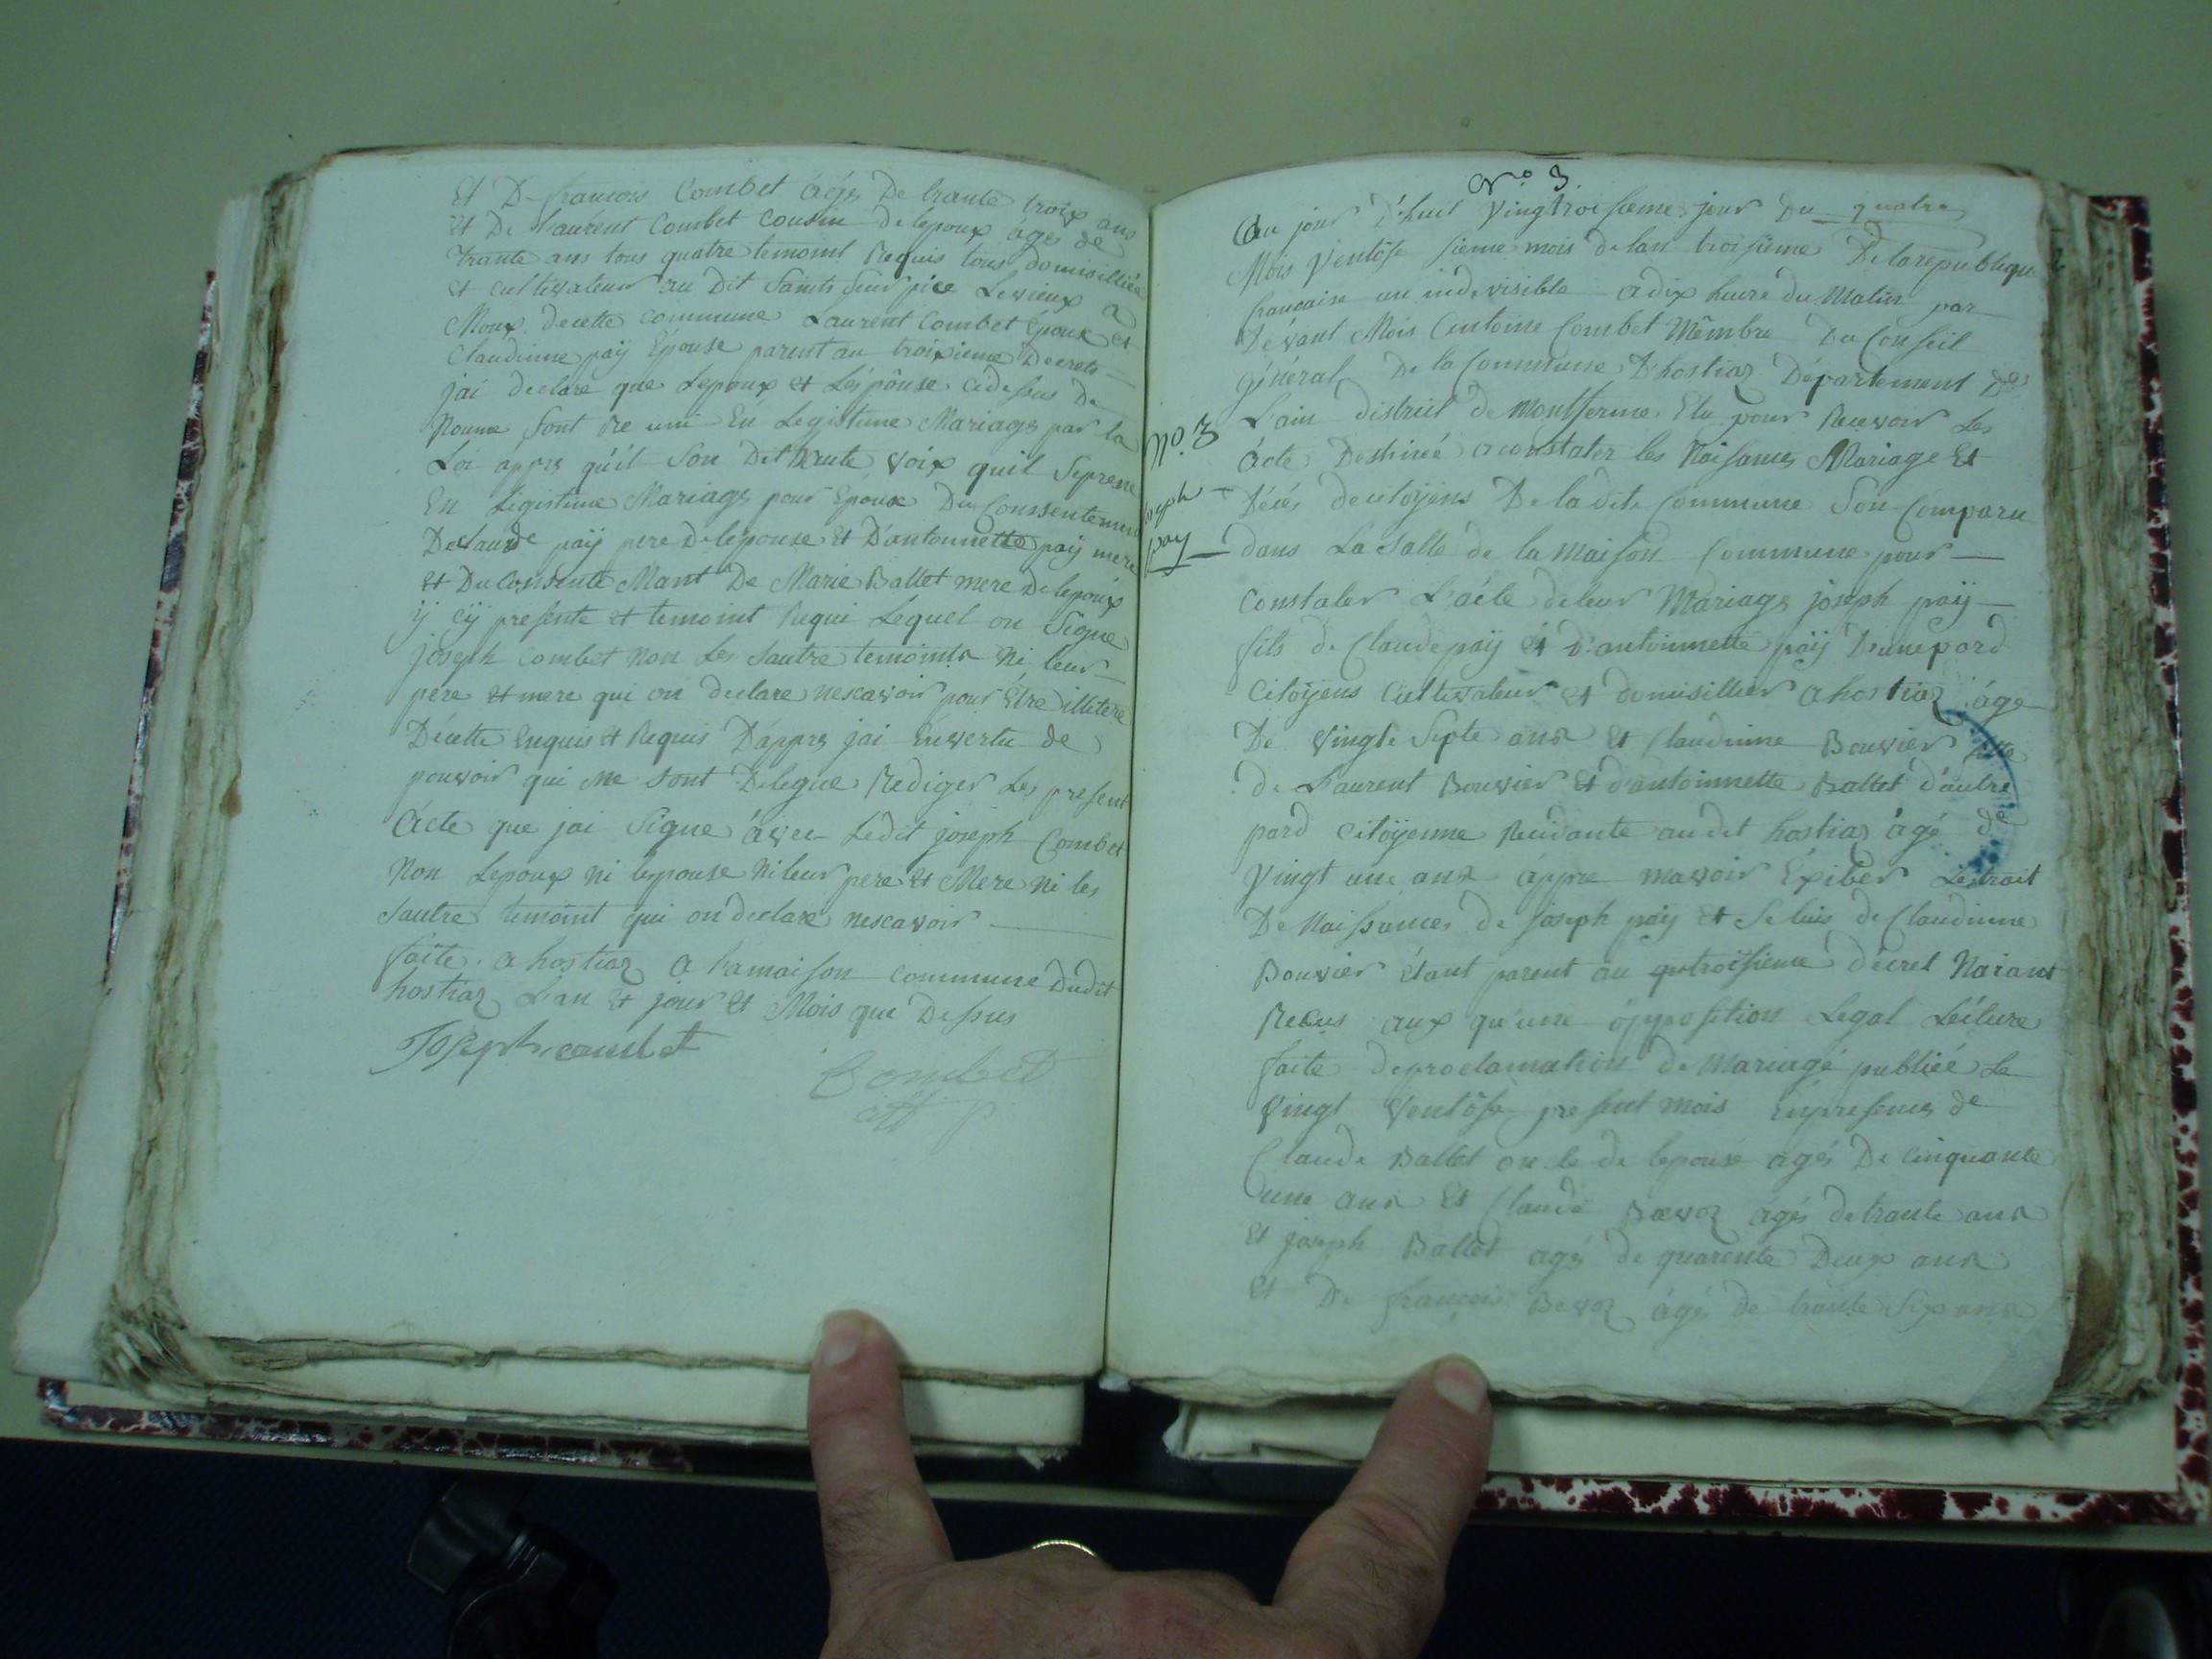 Et D francois Combet áégs De trante troix ans
Et De Laurent Combet Cousin de lepoux áges de
trante ans tous quatre temoint Requis tous domisilliée
Et cultivateur au Dit Saint Levieux
de cette Commune Laurent Combet Époux et
Claudinne paÿ Épouse parent au troixieme Decrets
jai declaré que Lepoux et Lés pôuse cidessus De
Nomme Sont Re uni En Legistime Mariage par la
Loi apprs qu'il Son Dit haute voix quil Seprene
En Legistime Mariage pour Époux Du Conssentement
De Claude paÿ pere De lepouse Et D'antonnette paÿ mere
Et Du Consente Mant De Marie Ballet mere De lepoux
ÿ cÿ presente et temoint Requi Lequel on Signe
joseph Combet Non Les Sautre temoints Ni leur
pere et mere qui on declare nescavoir pour Être illitere
Décette Enquis et Requis D'apprs jai Envertu de
pouvoir qui me sont Delegue Rediger Les present
Ácte que jai Signe ávec Ledit joseph Combet
Non Lepoux ni lepouse Ni leur pere et Mere Ni les
Sautre temoint qui on declare nescavoir
faite a hostiaz a la maison commune Dudit
hostiaz L'an et jour et Mois que Dessus
Joseph combet
Combet
off p
No. 3.
Au jour D'huit Vingtroisieme jour Du quatre
Mois Ventôse Sieme mois de lan troisieme De la republique
francaise un indivisible a dix heure du Matin par
Dévant Mois Antoine Combet Mêmbre Du Conseil
général De la Commune D'hostiaz Département De
L'ain distriit de montferme Élu pour Recevoir Les
Ácte Destineé a constater les Naisances Mariage Et
Décés de citoÿens De la dite Commune Son Comparu
No. 3
joseph
paÿ
dans La Salle de la Maison Commune pour
Constater L'aéte de leur Mariage joseph paÿ
fils de Claude paÿ Et D'antoinnette paÿ D'une pard
Citoÿens Cultivateur et domisillier a hostiaz áge
De Vingte Septe ans Et Claudinne Bouvier fille
de Laurent Bouvier Et d'antoinnette Ballet d'autre
pard Citoÿenne Residante au dit hostiaz agé de
Vingt une ans áppre mavoir Éxiber Lextrait
De Naissances de joseph paÿ Et Se luis de Claudinne
Bouvier étant parent au troisieme décret Naiant
Recus aux qu'une ópposition Legal Léiture
faite de proclamation de Mariage publiée Le
Vingt Ventôse present mois Enpresence de
Claude Ballet oncle de lepouse agés De Cinquante
une ans Et Claude Bevoz ágés de trante ans
Et joseph Ballet agé de quarente Deux ans
Et De francois Bevoz ágés de trante Six ans